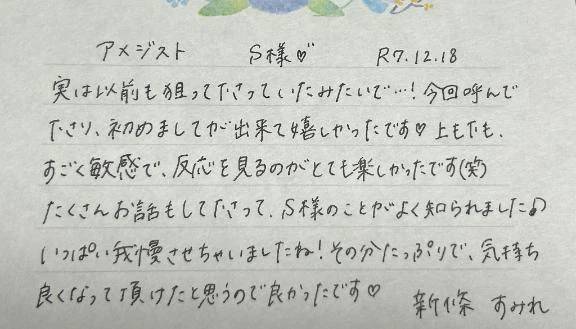 アメジスト S様♡ R7.12.18
実は以前も狙って下さっていたみたいで…!今回呼んで
下さり、初めましてが出来て嬉しかったです♡上も下も、
すごく敏感で、反応を見るのがとても楽しかったです(笑)
たくさんお話もして下さって、S様のことがよく知られました♪
いっぱい我慢させちゃいましたね!その分たっぷりで、気持ち
良くなって頂けたと思うので良かったです♡ 新條 すみれ